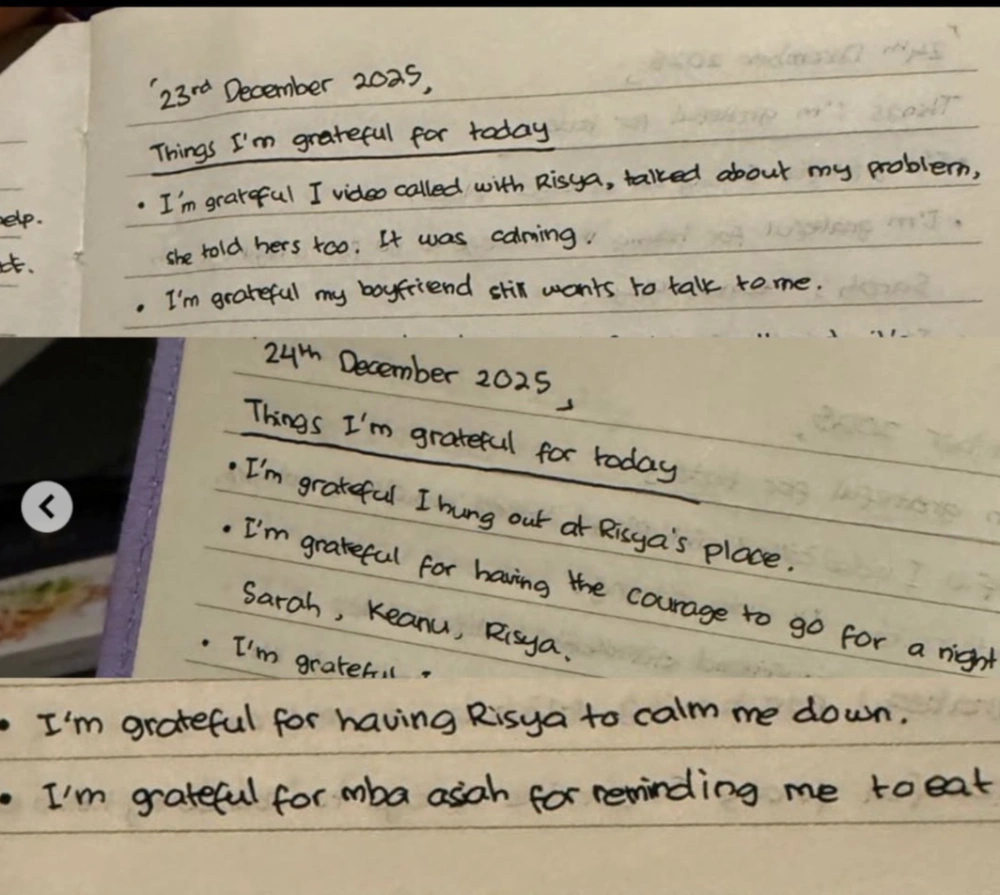 '23rd December 2025,
Things I'm grateful for today
• I'm grateful I video called with Risya, talked about my problem,
she told hers too. It was calming.
• I'm grateful my boyfriend still wants to talk to me.
elp.
ct.
24th December 2025,
Things I'm grateful for today
• I'm grateful I hung out at Risya's place.
• I'm grateful for having the courage to go for a night
Sarah, Keanu, Risya.
• I'm grateful
• I'm grateful for having Risya to calm me down.
• I'm grateful for mba asiah for reminding me to eat